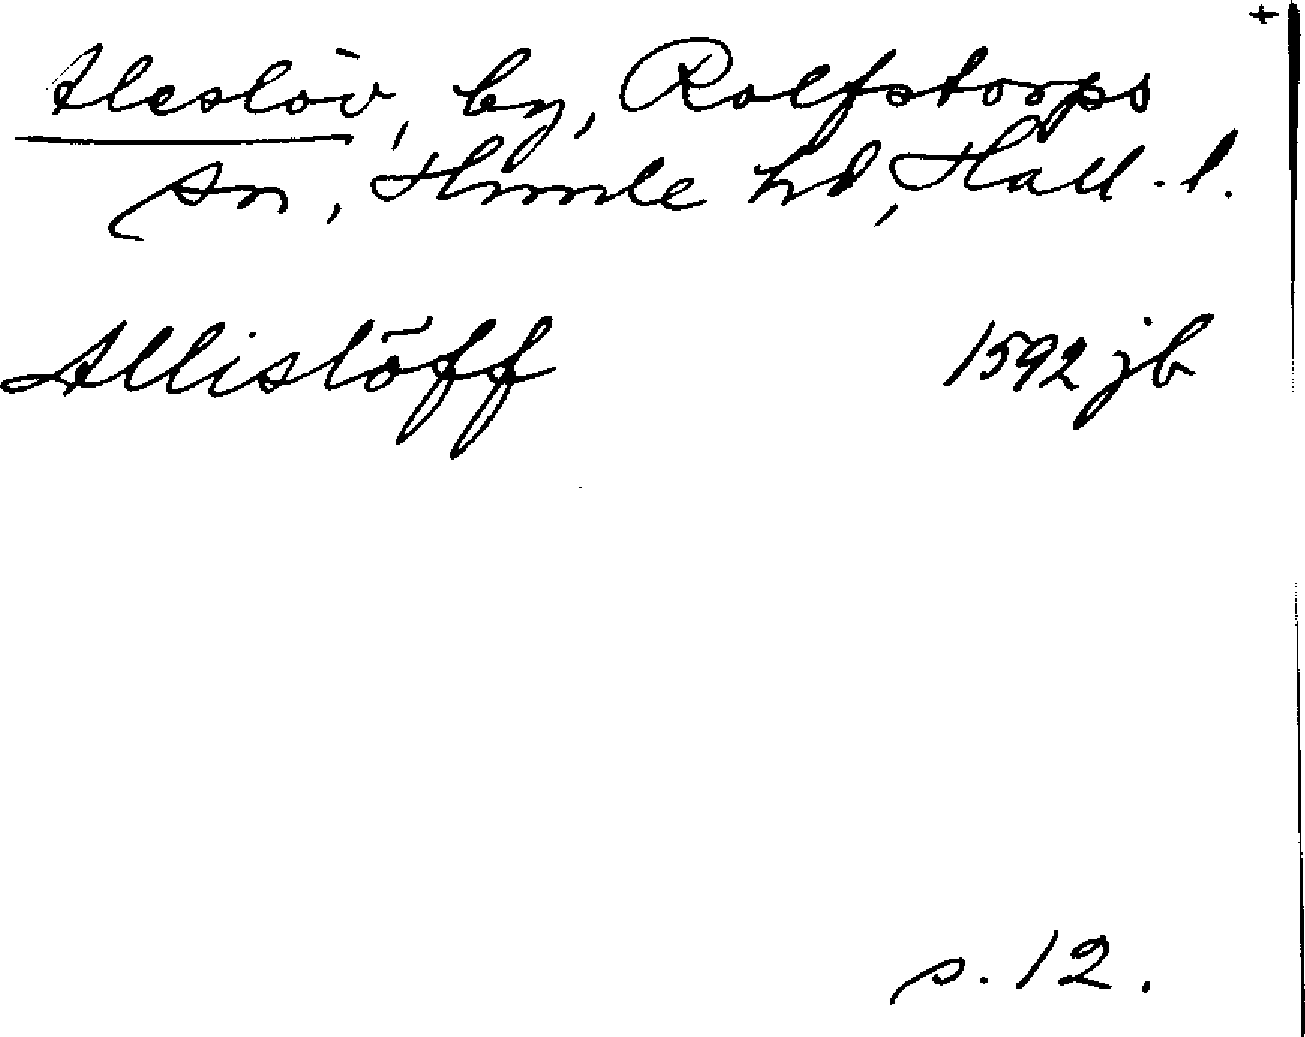 +
Aleslöv, by, Rolfstorps
sn, Himle hd, Hall. l.
Allislöff 1592 jb
s. 12.